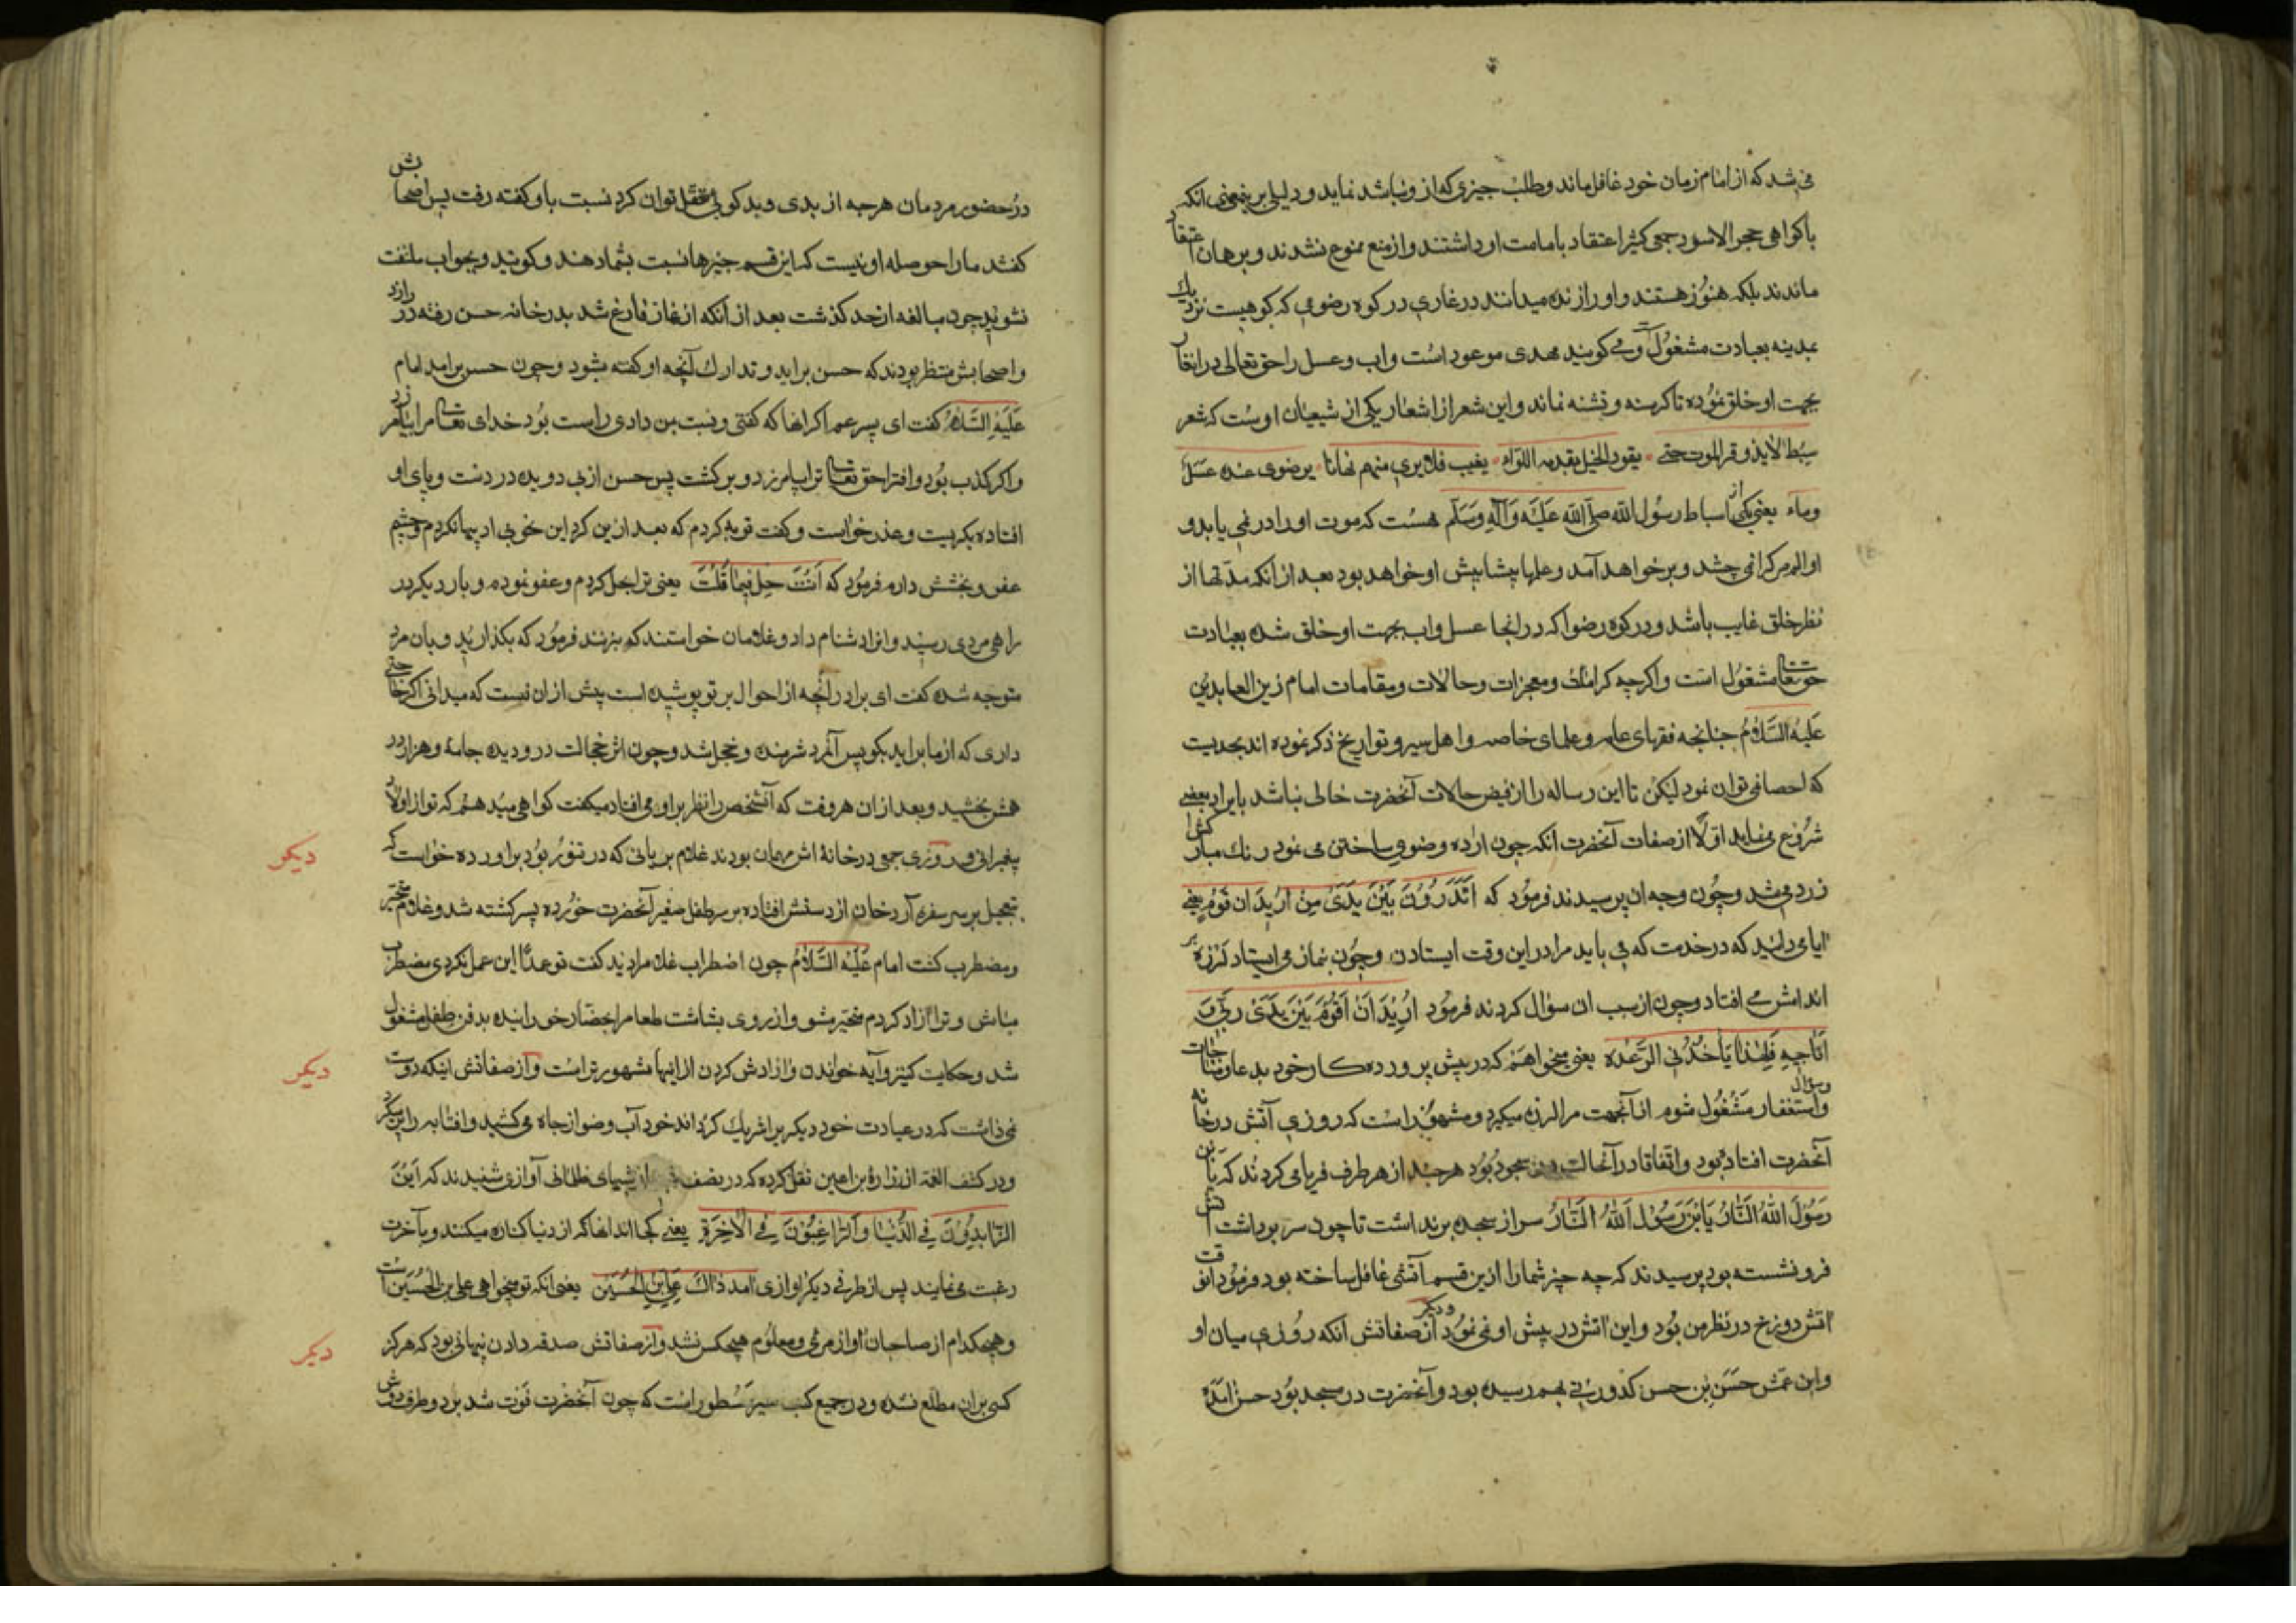 می شد که از امام زمان خود غافل ماند و طلب چیزی که از و نباشد نماید و دلیلی بر ینمعنی انکه
باکواهی حجر الاسود جمعی کثیر اعتقاد بامامت او داشتند و از منع ممنوع نشدند و برهان اعتقاد
ماندند بلکه هنوز هستند و او را زنده میدانند در غاری در کوه رضوی که کوهیست نزدیک
بمدینه بعبادت مشغول است و می کویند مهدی موعود است و اب و عسل را حق تعالی در انغار
بجهت او خلق نموده تا کرسنه و تشنه نماند و این شعر از اشعار یکی از شیعیان اوست که شعر
سبط لا یذوق الموت حتی یقود الخیل یقدمه اللواء یغیب فلا یری منهم زمانا برضوی عنده عسل
وماء یعنی یکی از اسباط رسول الله صلی الله علیه وآله وسلم هست که موت او را در نمی یابد و
او الم مرک را نمی چشد و بر خواهد آمد و علمها پیشاپیش او خواهد بود بعد از انکه مدتها از
نظر خلق غایب باشد و در کوه رضوا که در انجا عسل و اب بجهت او خلق شده بعبادت
حق تعالی مشغول است و اکرچه کرامات و معجزات و حالات و مقامات امام زین العابدین
علیه السلام چنانچه فقهای عامه و علمای خاصه و اهل سیر و تواریخ ذکر نموده اند بحدیست
که احصا نمی توان نمود لیکن تا این رساله را از فیض حالات آنحضرت خالی نباشد بایراد بعضی
شروع می نماید اولا از صفات آنحضرت انکه چون اراده وضوی ساختن می نمود رنک مبارکش
زرد می شد و چون وجه ان پرسیدند فرمود که اتدرون بین یدی من ارید ان اقوم یعنی
ایا می دانید که در خدمت که می باید مرا در این وقت ایستادن و چون بنماز می ایستاد لرزه بر
اندامش می افتاد و چون از سبب ان سؤال کردند فرمود ارید ان اقوم بین یدی ربی و
اناجیه فلهذا یأخذنی الرعده یعنی میخواهم که در پیش پرورده کار خود بدعا و مناجات
وسؤال واستغفار مشغول شوم از آنجهت مرا لرزه میکیرد و مشهور است که روزی آتش در خانه
آنحضرت افتاده بود و اتفاقا در آنحالت در سجود بود هر چند از هر طرف فریاد می کردند که یا بن
رسول الله النار یا بن رسول الله النار سر از سجده بر نداشت تا چون سر برداشت آتش
فرو نشسته بود پرسیدند که چه چیز شما را ازین قسم آتشی غافل ساخته بود فرمود انوقت
اتش دوزخ در نظر من بود و این اتش در پیش او نمی نمود و دیکر از صفاتش انکه روزی میان او
و ابن عمش حسن بن حسن کدورتی بهم رسیده بود و آنحضرت در مسجد بود حسن آمده
در حضور مردمان هر چه از بدی و بد کویی تعقل توان کرد نسبت باو کفته رفت پس اصحابش
کفتند ما را حوصله او نیست که این قسم چیزها نسبت بشما دهند و کویند و بجواب ملتفت
نشوید چون مبالغه از حد کذشت بعد از آنکه از نماز فارغ شد بدر خانه حسن رفته در را زد
و اصحابش منتظر بودند که حسن براید و تدارک آنچه او کفته بشود و چون حسن برامد امام
علیه السلام کفت ای پسر عم اکر انها که کفتی و نسبت بمن دادی راست بود خدای تعالی مرا بیامرزد
و اکر کذب بود و افترا حق تعالی ترا بیامرزد و برکشت پس حسن از پی دویده در دست و پای او
افتاده بکریست و عذر خواست و کفت توبه کردم که بعد ازین کرد این خو بی ادبیها نکردم و چشم
عفو و بخشش دارم فرمود که انت حل فیما قلت یعنی ترا بحل کردم و عفو نموده و بار دیکر در
راهی مردی رسید و انرا دشنام داد و غلامان خواستند که بزنند فرمود که بکذارید و بان مرد
متوجه شده کفت ای برادر انچه از احوال بر تو پوشیده است پیش از ان نیست که میدانی اکر حاجتی
داری که از ما براید بکو پس آنمرد شرمنده و خجل شد و چون اثر خجالت در و دیده جامهٔ و هزار در
همش بخشید و بعد از ان هر وقت که آنشخص را نظر بر او می افتاد میکفت کواهی میدهم که تو از اولاد
پیغمبرانی و روزی جمعی در خانهٔ اش مهمان بودند غلام بریانی که در تنور بود براورده خواست که
دیکر
تعجیل بر سر سفره آرد خان از دستش افتاده بر سر طفل صغیر آنحضرت خورده پسر کشته شد و غلام متحیر
و مضطرب کشت امام علیه السلام چون اضطراب غلام را دید کفت تو عمدا این عمل نکردی مضطرب
مباش و ترا آزاد کردم متحیر مشو و از روی بشاشت طعام را بحضار خورانیده بدفن طفل مشغول
شد و حکایت کنیز و آیه خواندن و ازادش کردن از اینها مشهورتر است و از صفاتش اینکه دوست
دیکر
نمی داشت که در عبادت خود دیکریرا شریک کرداند خود آب وضو از چاه می کشید و افتابه را پر میکرد
و در کشف الغمه از زراره بن اعین نقل کرده که در نصف شب از شبهای ظلمانی آوازی شنیدند که این
الزاهدون فی الدنیا و الراغبون فی الاخرة یعنی کجااند انها که از دنیا کناره میکنند و بآخرت
رغبت می نمایند پس از طرفی دیکر اوازی امد ذاک علی بن الحسین یعنی انکه تو میخواهی علی بن الحسین است
و هیچکدام از صاحبان اواز مرئی و معلوم هیچکس نشد و از صفاتش صدقه دادن پنهانی بود که هرکز
دیکر
کسی بران مطلع نشده و در جمیع کتب سیر مسطور است که چون آنحضرت فوت شد بر دو طرف دوش